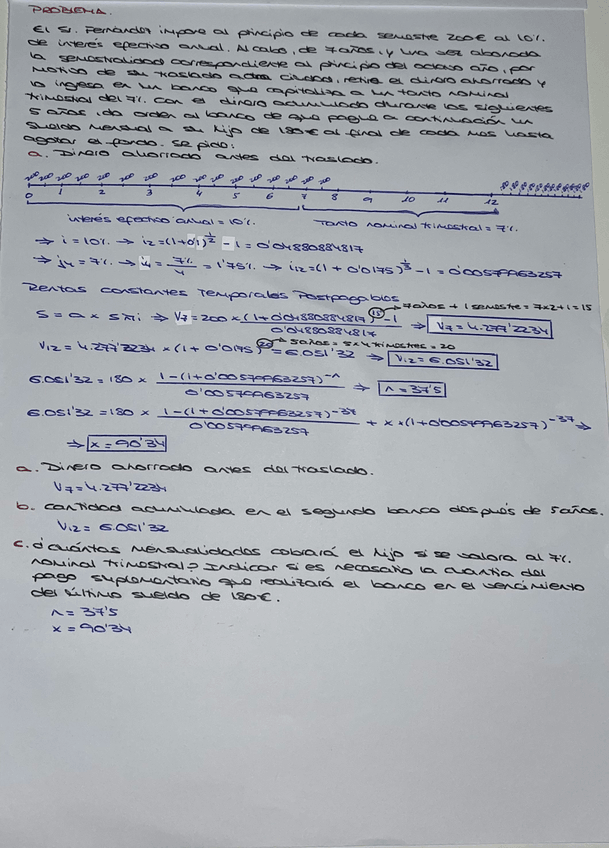 PROBLEMA.
El Sr. Fernández impone al principio de cada semestre 200€ al 10%
de interés efectivo anual. Al cabo, de 7 años, y una vez abonada
la semestralidad correspondiente al principio del octavo año, por
motivo de su traslado a otra ciudad, retira el dinero ahorrado y
lo ingresa en un banco que capitaliza a un tanto nominal
trimestral del 7%. Con el dinero acumulado durante los siguientes
5 años, da orden al banco de que pague a continuación un
sueldo mensual a su hijo de 180€ al final de cada mes hasta
agotar el fondo. Se pide:
a. Dinero ahorrado antes del traslado.
200 200 200 200 200 200 200 200 200 200 200 200 200 200 200
0 1 2 3 4 5 6 7 8 9 10 11 12
interés efectivo anual = 10%. Tanto nominal trimestral = 7%
⇒ i = 10% → i2 = (1+0'1)^1/2 - 1 = 0'04880884817
⇒ j4 = 7% → i4 = 7%/4 = 1'75% → i12 = (1 + 0'0175)^1/3 - 1 = 0'00579963257
Rentas constantes Temporales Postpagables
→ 7 años + 1 semestre = 7x2+1 = 15
S = a x s n̄ i ⇒ V7 = 200 x (1+0'04880884817)^15 - 1 / 0'04880884817 ⇒ V7 = 4.277'2234
→ 5 años = 5x4 trimestres = 20
V12 = 4.277'2234 x (1 + 0'0175)^20 = 6.051'32 ⇒ V12 = 6.051'32
6.051'32 = 180 x 1-(1+0'00579963257)^-n / 0'00579963257 ⇒ n = 37'5
6.051'32 = 180 x 1-(1+0'00579963257)^-37 / 0'00579963257 + x x (1+0'00579963257)^-37 ⇒
⇒ x = 90'34
a. Dinero ahorrado antes del traslado.
V7 = 4.277'2234
b. Cantidad acumulada en el segundo banco después de 5 años.
V12 = 6.051'32
c. ¿Cuántas mensualidades cobrará el hijo si se valora al 7%
nominal trimestral? Indicar si es necesario la cuantía del
pago suplementario que realizará el banco en el vencimiento
del último sueldo de 180€.
n = 37'5
x = 90'34